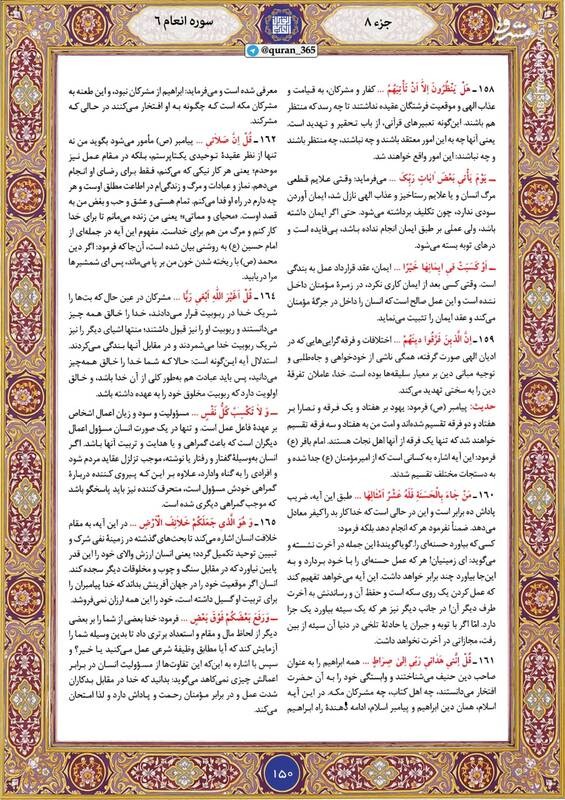 جزء ۸
سوره انعام ۶
@quran_365
مشرق
۱۵۸ـ هَلْ يَنْظُرُونَ إِلاَّ أَنْ تَأْتِيَهُمْ ... کفار و مشرکان، به قیامت و
عذاب الهی و موقعیت فرشتگان عقیده نداشتند تا چه رسد که منتظر
هم باشند. این‌گونه تعبیرهای قرآنی، از باب تحقیر و تهدید است.
یعنی آنها چه به این امور معتقد باشند و چه نباشند، چه منتظر باشند
و چه نباشند؛ این امور واقع خواهند شد.
ـ يَوْمَ يَأْتِي بَعْضُ آيَاتِ رَبِّكَ ... می‌فرماید: وقتـی علایـم قطعـی
مرگ انسان و یا علایم رستاخیز و عذاب الهی نازل شد، ایمان آوردن
سودی ندارد، چون تکلیف برداشته می‌شود. حتی اگر ایمان داشته
باشد، ولی عملی بر طبق ایمان انجام نداده باشد، بی‌فایده است و
درهای توبه بسته می‌شود.
ـ أَوْ كَسَبَتْ فِي إِيمَانِهَا خَيْرًا ... ایمان، عقد قرارداد عمل به بندگی
است. وقتی کسی بعد از ایمان کاری نکرد، در زمـرهٔ مؤمنان داخل
نشده است و این عمل صالح است که انسان را داخل در جرگهٔ مؤمنان
می‌کند و عقد ایمان را تثبیت می‌نماید.
۱۵۹ـ اِنَّ الَّذِينَ فَرَّقُوا دِينَهُمْ ... اختلافات و فرقه‌گرایی‌هایی که در
ادیان الهی صورت گرفته، همگی ناشی از خودخواهی و جاه‌طلبی و
توجیه مبانی دین بر معیار سلیقه‌ها بوده است. خدا، عاملان تفرقهٔ
دین را به سختی تهدید می‌کند.
حدیث: پیامبر (ص) فرمود: یهود بر هفتاد و یـک فرقـه و نصارا بر
هفتاد و دو فرقه تقسیم شده‌اند و امت من به هفتاد و سه فرقه تقسیم
خواهند شد که تنها یک فرقه از آنها اهل نجات هستند. امام باقر (ع)
فرمود: این آیه اشاره به کسانی است که از امیرمؤمنان (ع) جدا شده و
به دستجات مختلف تقسیم شدند.
۱۶۰ـ مَنْ جَاءَ بِالْحَسَنَةِ فَلَهُ عَشْرُ أَمْثَالِهَا ... طبق این آیه، ضریب
پاداش ده برابر است و این در حالی است که خدا کار بد را کیفر معادل
می‌دهد. ضمناً نفرمود هر که انجام دهد بلکه فرمود:
کسی که بیاورد حسنه‌ای را. گویا گویندهٔ این جمله در آخرت نشسته و
می‌گوید: ای زمینیان! هر که عمل حسنه‌ای را بـا خـود بـردارد و بـه
این‌جا بیاورد چند برابر خواهد داشت. این آیه می‌خواهد تفهیم کند
که عمل کردن یک روی سکه است و حفظ آن و رساندنش به آخرت
طرف دیگر آن! در جانب دیگر نیز هر که یک سیئه بیاورد یک جزا
دارد. امّا اگر با توبه و جبران یا حادثهٔ تلخی در دنیا آن سیئه از بین
رفت، مجازاتی در آخرت نخواهد داشت.
۱۶۱ـ قُلْ إِنَّنِي هَدَانِي رَبِّي إِلَىٰ صِرَاطٍ ... همه ابراهیم را به عنوان
صاحب دین حنیف می‌شناختند و وابستگی خود را به آن حضرت
افتخار می‌دانستند، چه اهل کتاب، چه مشرکان مکه. در این آیـه
اسلام، همان دین ابراهیم و پیامبر اسلام، ادامه دهندهٔ راه ابراهیم
معرفی شده است و می‌فرماید: ابراهیم از مشرکان نبود، و این طعنه به
مشرکان مکه است که چگونه به او افتخار می‌کنند در حـالی کـه
مشرکند.
۱۶۲ـ قُلْ إِنَّ صَلَاتِي ... پیامبر (ص) مأمور می‌شود بگوید من نه
تنها از نظر عقیدهٔ توحیدی یکتاپرستم، بلکه در مقام عمل نیز
موحدم؛ یعنی هر کار نیکی که می‌کنم، فقـط بـرای رضای او انجام
می‌دهم. نماز و عبادات و مرگ و زندگی‌ام در اطاعت مطلق اوست و هر
چه دارم در راه او فدا می‌کنم. تمام هستی و عشق و حب و بغض من به
قصد اوست. «محیای و مماتی» یعنی من زنده می‌مانم تا برای خدا
کار کنم و مرگ من هم برای خداست. مفهوم این آیه در جمله‌ای از
امام حسین (ع) به روشنی بیان شده است، آن‌جا که فرمود: اگر دین
محمد (ص) با ریخته شدن خون من بر پا می‌ماند، پس ای شمشیرها
مرا دریابید.
۱۶۴ـ قُلْ أَغَيْرَ اللَّهِ أَبْغِي رَبًّا ... مشرکان در عین حال که بت‌ها را
شریک خدا در ربوبیت قرار می‌دادند، خدا را خالق همه چیز
می‌دانستند و ربوبیت او را نیز قبول داشتند؛ منتها اشیای دیگر را نیز
شریک ربوبیت خدا می‌شمردند و در مقابل آنها بندگی می‌کردند.
استدلال آیه این‌گونه است: حالا که شما خدا را خالق همه‌چیز
می‌دانید، پس باید عبادت هم به‌طور کلی از آن خدا باشد، و خالق
اولویت دارد که ربوبیت مخلوق خود را به عهده داشته باشد.
ـ وَ لَا تَكْسِبُ كُلُّ نَفْسٍ ... مسؤولیت و سود و زیان اعمال اشخاص
بر عهدهٔ فاعل عمل است و تنها در یک صورت انسان مسؤول اعمال
دیگران است که باعث گمراهی و یا هدایت و تربیت آنها باشد. اگر
انسان به‌وسیلهٔ گفتار و رفتار یا نوشته، موجب تزلزل عقاید مردم شود
و افرادی را به گناه وادارد، علاوه بر این‌کـه پیـروی کننده دربارهٔ
گمراهی خودش مسؤول است، منحرف کننده نیز باید پاسخگو باشد
که موجب گمراهی دیگری شده است.
۱۶۵ـ وَ هُوَ الَّذِي جَعَلَكُمْ خَلَائِفَ الْأَرْضِ ... در این آیه، به مقام
خلافت انسان اشاره می‌کند تا بحث‌های گذشته در زمینهٔ نفی شرک و
تبیین توحید تکمیل گردد؛ یعنی انسان ارزش والای خود را این قدر
پایین نیاورد که در مقابل سنگ و چوب و مخلوقات دیگر سجده کند.
انسان اگر موقعیت خود را در جهان آفرینش بداند که خدا پیامبران را
برای تربیت او گسیل داشته است، خود را این همه ارزان نمی‌فروشد.
ـ وَرَفَعَ بَعْضَكُمْ فَوْقَ بَعْضٍ ... فرمود: خدا بعضی از شما را بر بعضی
دیگر از لحاظ مال و مقام و استعداد برتری داد تا بدین وسیله شما را
آزمایش کند که آیا مطابق وظیفهٔ شرعی عمل می‌کنید یـا خـیر؟ و
سپس با اشاره به این‌که این تفاوت‌ها از مسؤولیت انسان در برابر
اعمالش چیزی نمی‌کاهد می‌گوید: بدانید که خدا در مقابل بدکاران
شدت عمل و در برابر مؤمنان رحمت و پاداش دارد و لذا امتحان
می‌کند.
۱۵۰